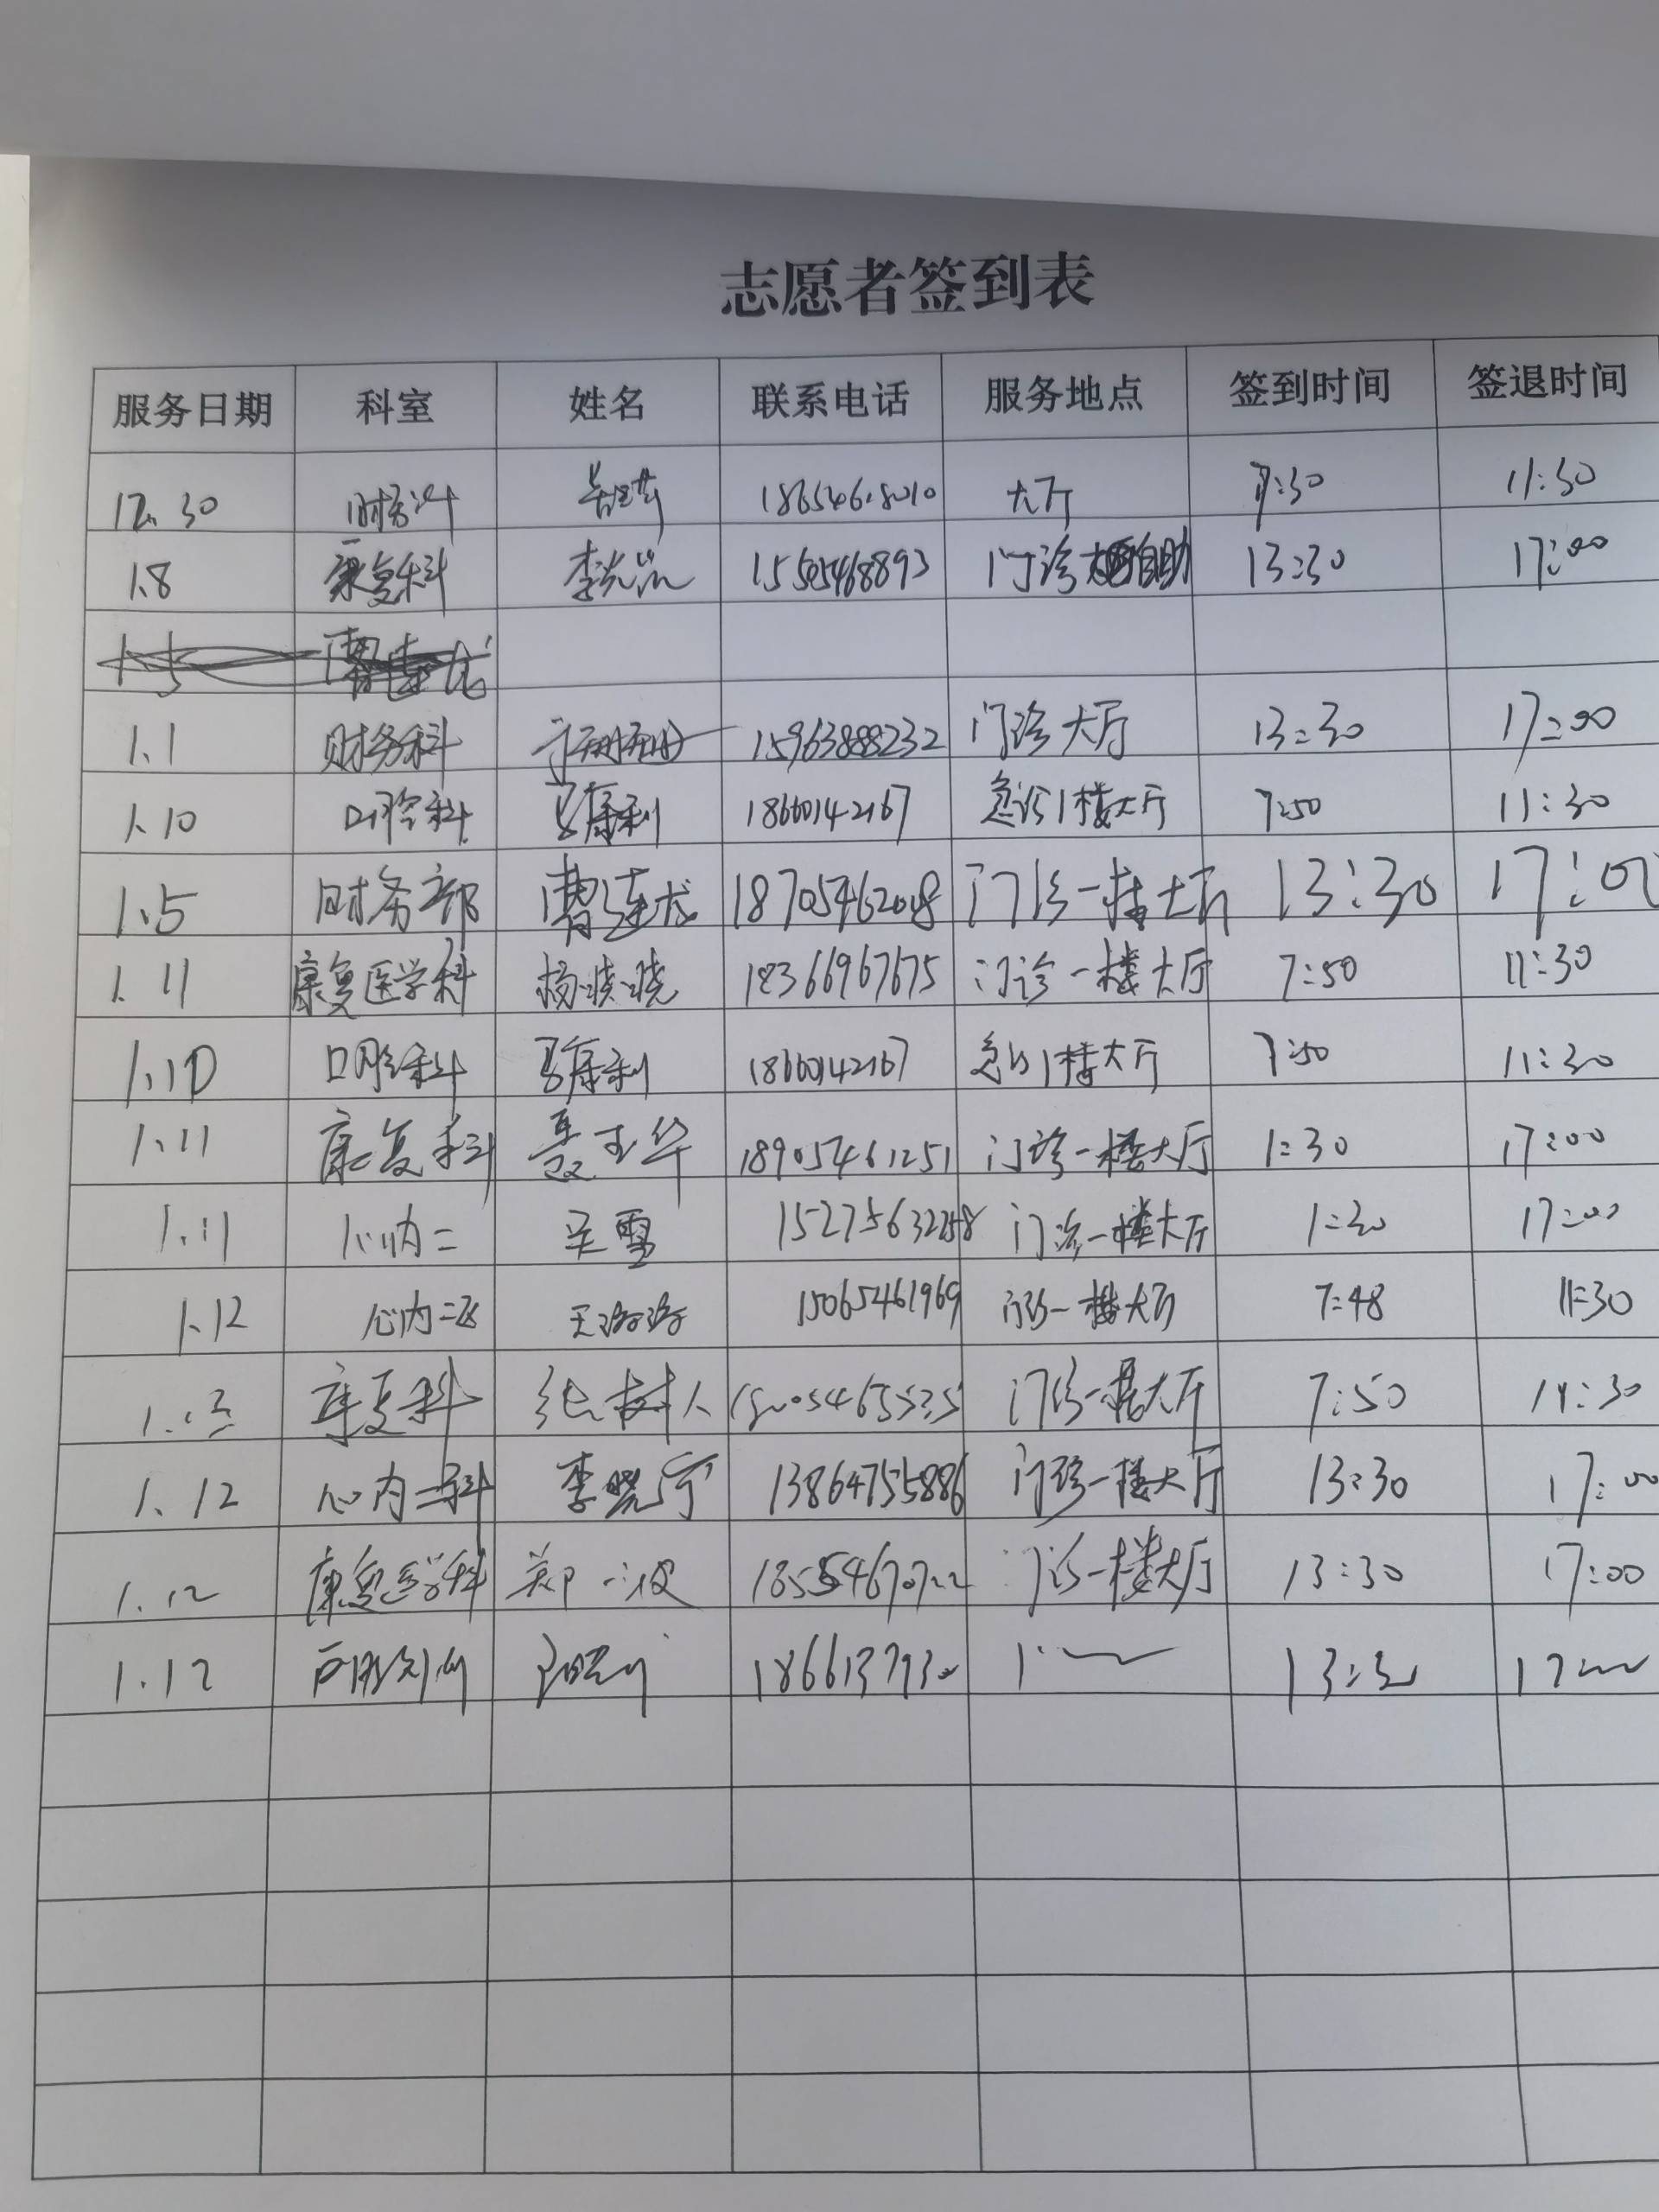 志愿者签到表
服务日期 科室 姓名 联系电话 服务地点 签到时间 签退时间
12.30 财务科 18654618010 大厅 7:30 11:30
1.8 康复科 15505468893 门诊 自助 13:30 17:00
1.5 曹连龙
1.1 财务科 15963888232 门诊大厅 13:30 17:00
1.10 口腔科 马康利 18660142167 急诊1楼大厅 7:50 11:30
1.5 财务部 曹连龙 18705462018 门诊一楼大厅 13:30 17:00
1.11 康复医学科 杨晓晓 18366967675 门诊一楼大厅 7:50 11:30
1.10 口腔科 马康利 18660142167 急诊1楼大厅 7:50 11:30
1.11 康复科 聂玉华 18905461251 门诊一楼大厅 1:30 17:00
1.11 心内二 吴雪 门诊一楼大厅 1:30 17:00
1.12 心内二 王路路 15065461969 门诊一楼大厅 7:48 11:30
康复科 树人 门诊一楼大厅 7:50 11:30
1.12 心内二科 李晓宁 13864755886 门诊一楼大厅 13:30 17:00
1.12 康复医学科 郑一波 门诊一楼大厅 13:30 17:00
1.12 13:30 17:00